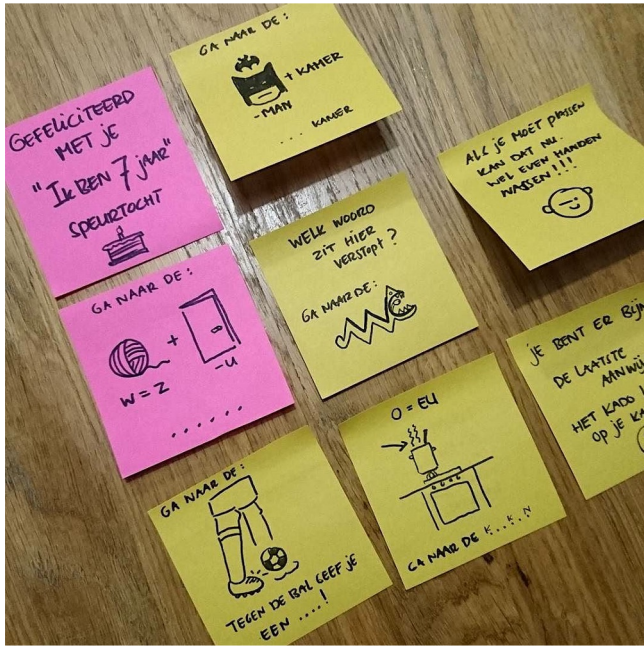 GEFELICITEERD
MET JE
"IK BEN 7 JAAR"
SPEURTOCHT
GA NAAR DE:
+ KAMER
-MAN
... KAMER
ALS JE MOET PLASSEN
KAN DAT NU.
WEL EVEN HANDEN
WASSEN!!!
GA NAAR DE:
+
W=Z
-U
......
WELK WOORD
ZIT HIER
VERSTOPT?
GA NAAR DE:
JE BENT ER
DE LAATSTE
HET KADO
OP JE
GA NAAR DE:
TEGEN DE BAL GEEF JE
EEN ....!
O = EU
GA NAAR DE K..K.N